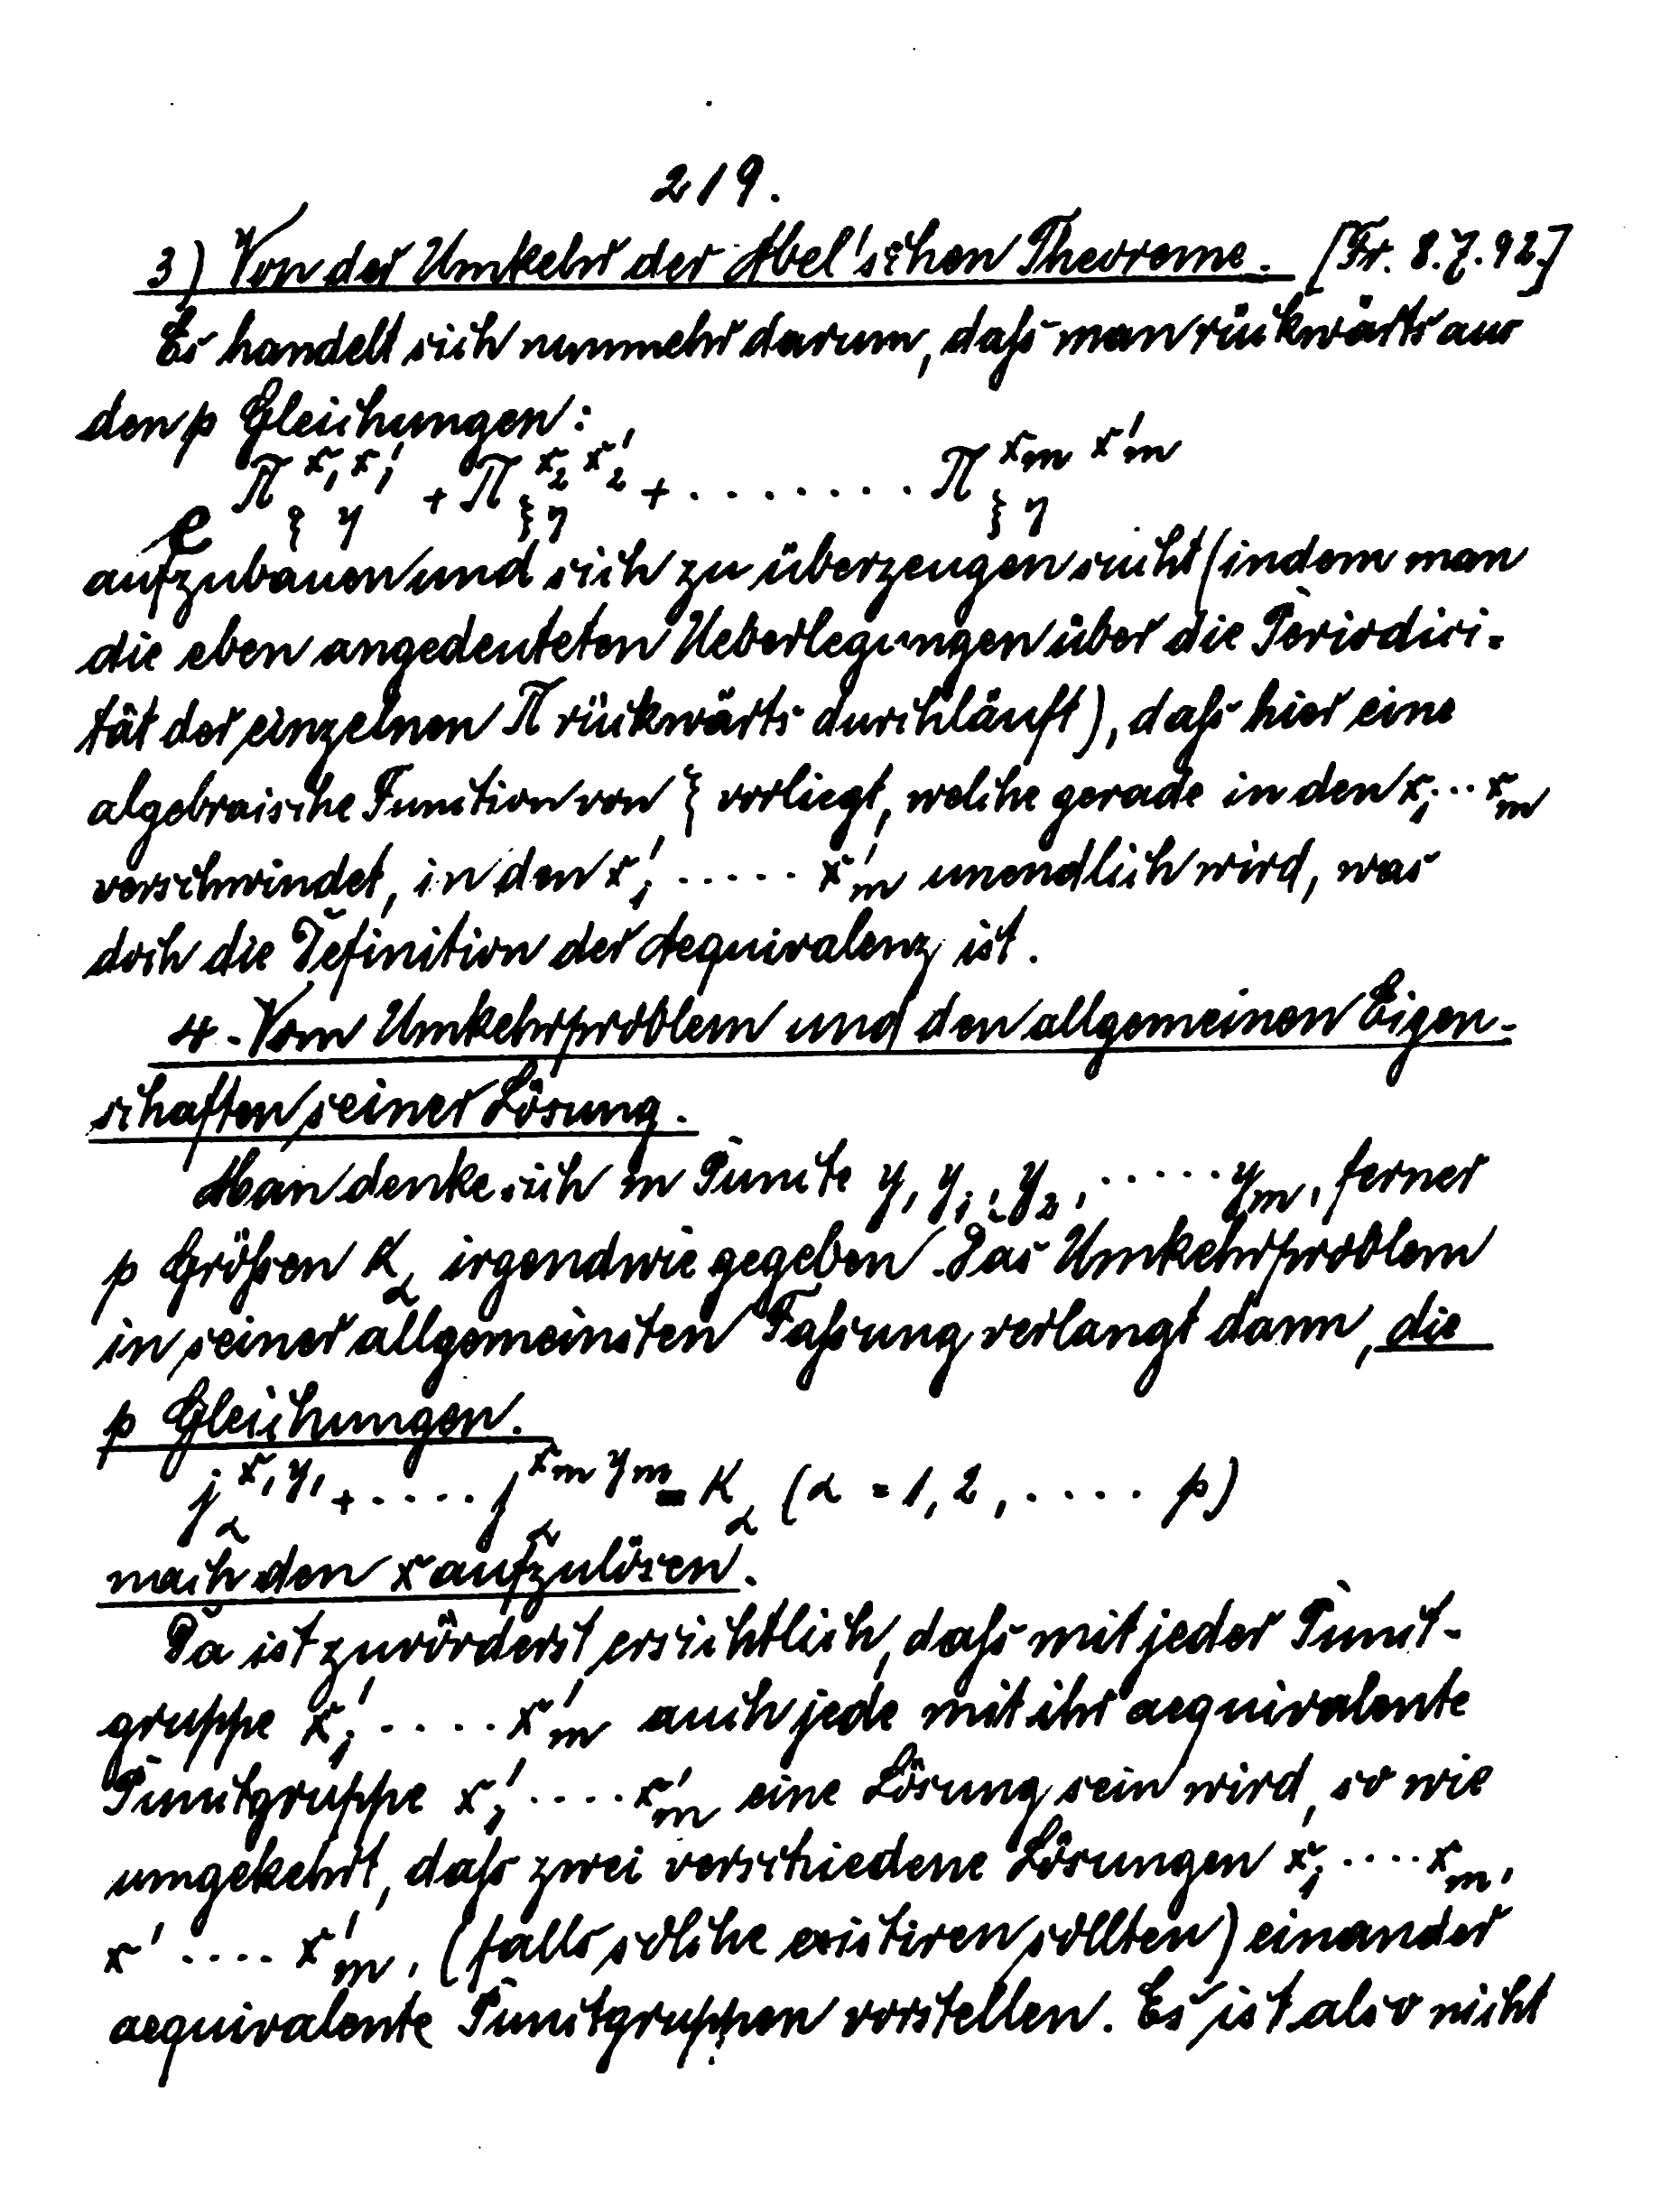 219.
3) Von der Umkehr der Abel'schen Theoreme. [Fr. 8.7.92.]
Es handelt sich nunmehr darum, daſs man rückwärts aus
den p Gleichungen:
e^{Π_{ξ η}^{x_1 x'_1} + Π_{ξ η}^{x_2 x'_2} + ........ Π_{ξ η}^{x_m x'_m}}
aufzubauen und sich zu überzeugen sucht (indem man
die eben angedeuteten Ueberlegungen über die Periodici-
tät der einzelnen Π rückwärts durchläuft), daſs hier eine
algebraische Function von ξ vorliegt, welche gerade in den x_1 ... x_m
verschwindet, in den x'_1 ..... x'_m unendlich wird, was
doch die Definition der Aequivalenz ist.
4. Vom Umkehrproblem und den allgemeinen Eigen-
schaften seiner Lösung.
Man denke sich m Puncte y, y_1, y_2, ..... y_m, ferner
p Gröſsen K_α irgendwie gegeben. Das Umkehrproblem
in seiner allgemeinsten Faſsung verlangt dann, die
p Gleichungen.
j_α^{x_1 y_1} + ..... j_α^{x_m y_m} = K_α (α = 1, 2, .... p)
nach den x aufzulösen.
Da ist zuvörderst ersichtlich, daſs mit jeder Punct-
gruppe x'_1 .... x'_m auch jede mit ihr aequivalente
Punctgruppe x'_1 .... x'_m eine Lösung sein wird, so wie
umgekehrt, daſs zwei verschiedene Lösungen x_1 .... x_m,
x' .... x'_m, (falls solche existiren sollten) einander
aequivalente Punctgruppen vorstellen. Es ist also nicht